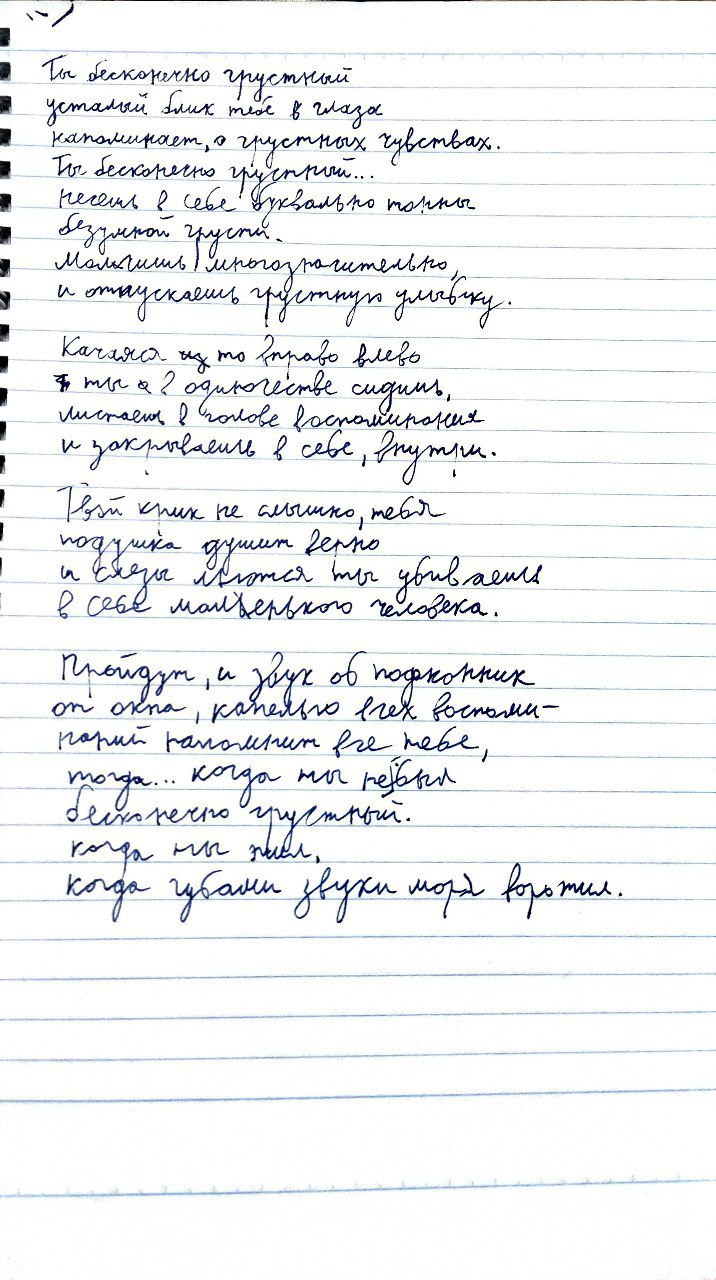 Ты бесконечно грустный
усталый блик тебе в глаза
напоминает, о грустных чувствах.
Ты бесконечно грустный...
несешь в себе буквально тонны
безумной грусти.
Молчишь многозначительно,
и отпускаешь грустную улыбку.
Качаяся то вправо влево
ты в одиночестве сидишь,
листаешь в голове воспоминания
и закрываешь в себе, внутри.
Твой крик не слышно, тебя
подушка душит верно
и слезы льются ты убиваешь
в себе маленького человека.
Пройдут, и звук об подконник
от окна, капелью всех воспоми-
наний напомнит все тебе,
тогда... когда ты не был
бесконечно грустный.
когда ты жил,
когда губами звуки моря ворожил.